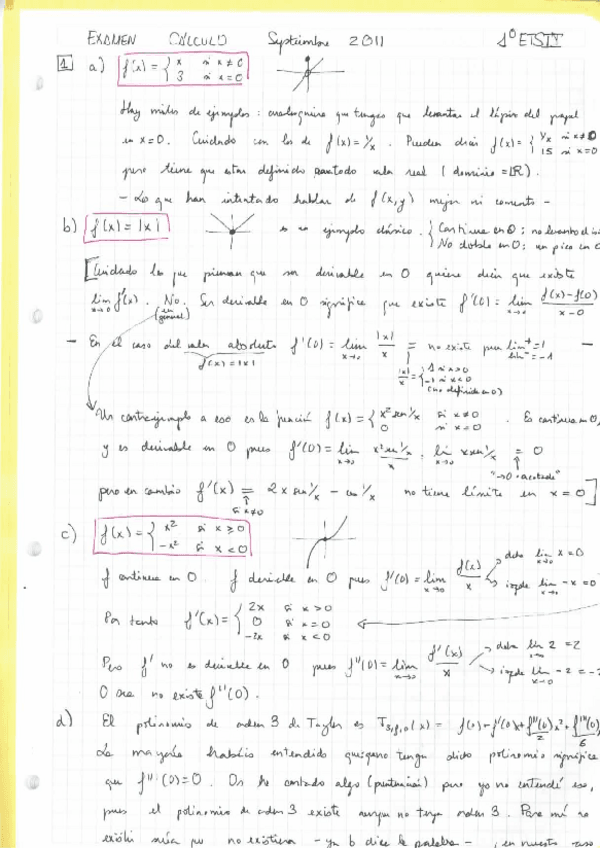 EXAMEN CÁLCULO Septiembre 2011 1º ETSIT
1 a) f(x) = { x si x ≠ 0
3 si x = 0
Hay miles de ejemplos: cualquiera que tengas que levantar el lápiz del papel
en x=0. Cuidado con los de f(x) = 1/x. Pueden decir f(x) = { 1/x si x≠0
15 si x=0
pero tiene que estar definido para todo valor real (dominio = ℝ).
- Los que han intentado hablar de f(x,y) mejor ni comento -
b) f(x) = |x| es un ejemplo clásico. { Continua en 0: no levanto el
No doble en 0: un pico en 0
[Cuidado los que piensan que ser derivable en 0 quiere decir que existe
lim x→0 f'(x). No. Ser derivable en 0 significa que existe f'(0) = lim x→0 f(x)-f(0) / x-0
(en general)
- En el caso del valor absoluto f'(0) = lim x→0 |x|/x = no existe pues lim⁺ = 1 -
lim⁻ = -1
f(x) = |x|
|x|/x = { 1 si x>0
-1 si x<0
(no definida en 0)
Un contraejemplo a eso es la función f(x) = { x² sen 1/x si x ≠ 0 . Es continua en 0,
0 si x = 0
y es derivable en 0 pues f'(0) = lim x→0 x² sen 1/x / x = lim x→0 x sen 1/x = 0
"→0 · acotada"
pero en cambio f'(x) = 2x sen 1/x - cos 1/x no tiene límite en x = 0]
si x≠0
c) f(x) = { x² si x ≥ 0
-x² si x < 0
f continua en 0. f derivable en 0 pues f'(0) = lim x→0 f(x)/x → dcha lim x→0 x = 0
→ izqda lim x→0 -x = 0
Por tanto f'(x) = { 2x si x > 0
0 si x = 0
-2x si x < 0
Pero f' no es derivable en 0 pues f''(0) = lim x→0 f'(x)/x → dcha lim x→0 2 = 2
→ izqda lim x→0 -2 = -2
O sea no existe f''(0).
d) El polinomio de orden 3 de Taylor es T₃,f,₀(x) = f(0) + f'(0)x + f''(0)/2 x² + f'''(0)/6
La mayoría habéis entendido que tenga dicho polinomio significa
que f'''(0) = 0. Os he contado algo (puntuación) pero yo no entendí eso,
pues el polinomio de orden 3 existe aunque no tenga orden 3. Para mí no
- ya lo dice la palabra -, en nuestro caso